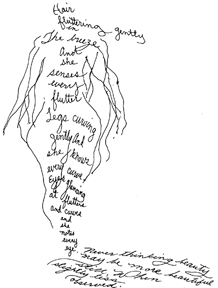 Hair
fluttering gently
in
The breeze
And
she
senses
every
flutter
Legs curving
gently And
she knows
every curve
Eyes gleaming
at flutters
and curves
and
she
notes
every
eye
Never thinking beauty
may be more beautiful
slightly less
observed.